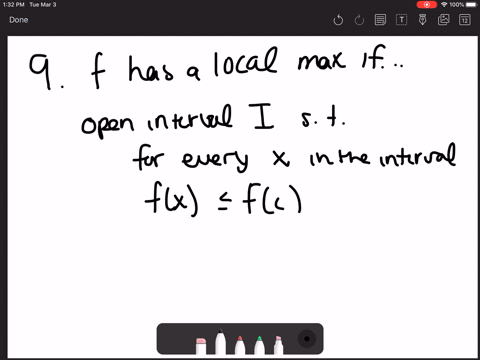 1:32 PM Tue Mar 3
100%
Done
T
12
9. f has a local max if...
open interval I s.t.
for every x in the interval
f(x) ≤ f(c)